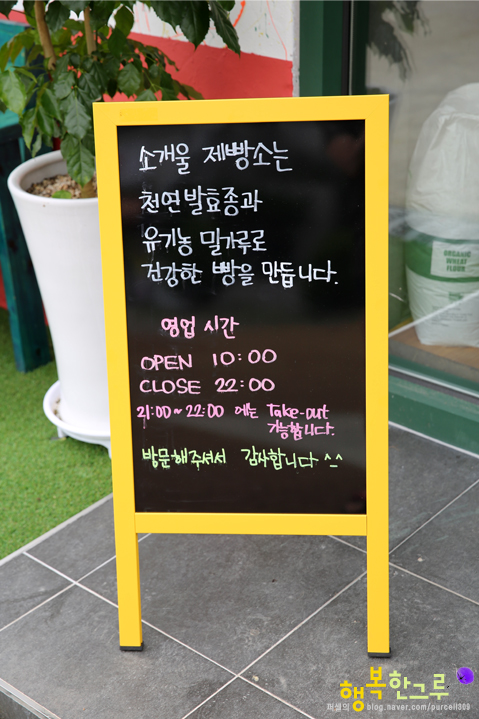 소개울 제빵소는
천연발효종과
유기농 밀가루로
건강한 빵을 만듭니다.
영업 시간
OPEN 10:00
CLOSE 22:00
21:00~22:00 에는 Take-out
가능합니다.
방문해주셔서 감사합니다 ^_^
ORGANIC
WHEAT
FLOUR
행복한그루
퍼셀의 blog.naver.com/purcell303